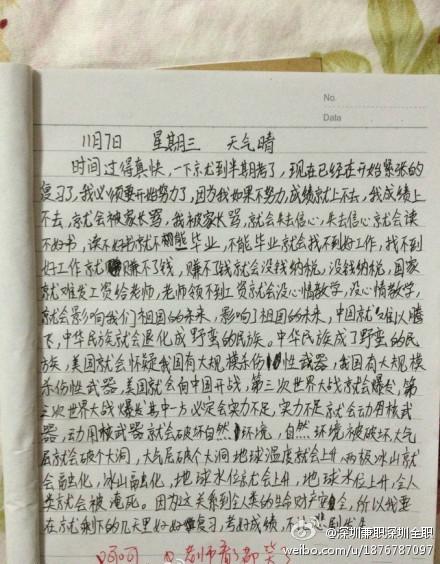 No.
Data
11月7日 星期三 天气晴
时间过得真快，一下就到半期考了，现在已经进开始紧张的
复习了，我必须要开始努力了，因为我如果不努力，成绩就上不去，我成绩上
不去，就会被家长骂，我被家长骂，就会失去信心，失去信心就会读
不好书，读不好书就不能毕业，不能毕业就会找不到好工作，找不到
好工作就赚不了钱，赚不了钱就会没钱纳税，没钱纳税，国家
就难发工资给老师，老师领不到工资就会没心情教学，没心情教学，
就会影响我们祖国的未来，影响了祖国的未来，中国就难以腾
飞，中华民族就会退化成野蛮的民族。中华民族成了野蛮的民
族，美国就会怀疑我国有大规模杀伤性武器，我国有大规模
杀伤性武器，美国就会向中国开战，第三次世界大战就会爆发，第
三次世界大战爆发其中一方必定会实力不足，实力不足就会动用核武
器，动用核武器就会破坏自然环境，自然环境被破坏，大气
层就会破个大洞，大气层破个大洞地球温度就会上升，两极冰山就
会融化，冰山融化，地球水位就会上升，地球水位上升，全人
类就会被淹死。因为这关系到全人类的生命财产安全，所以我要
在就剩下的几天里好好复习，考好成绩，不让悲剧发生
呵呵 老师看了都笑了
@深圳兼职深圳全职
weibo.com/u/1876787097